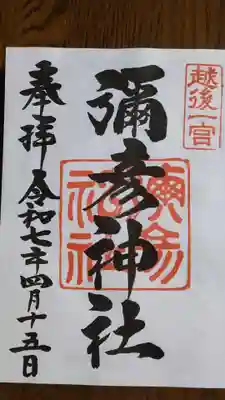 越後一宮
彌彦神社
奉拝 令和七年四月十五日